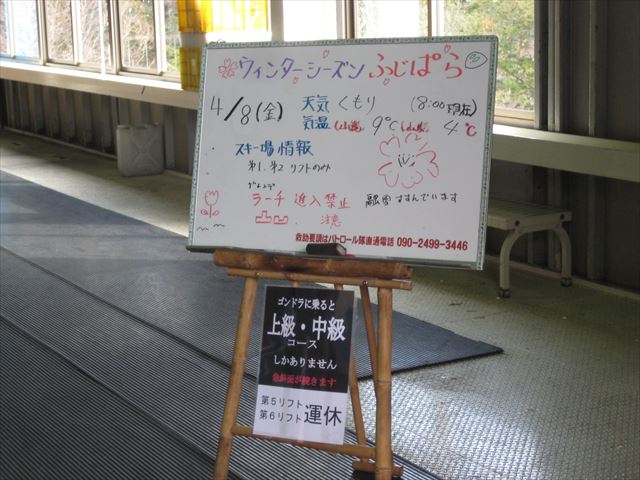 ウィンターシーズン ふじぱら
4/8(金) 天気 くもり (8:00現在)
気温 (山麓) 9℃ 4℃
スキー場情報
第1.第2 リフトのみ
ラーチ 進入禁止 融雪すすんでいます
凸凹 注意
救助要請はパトロール隊直通電話 090-2499-3446
ゴンドラに乗ると
上級・中級
コース
しかありません
急斜面が続きます
第5リフト
第6リフト 運休